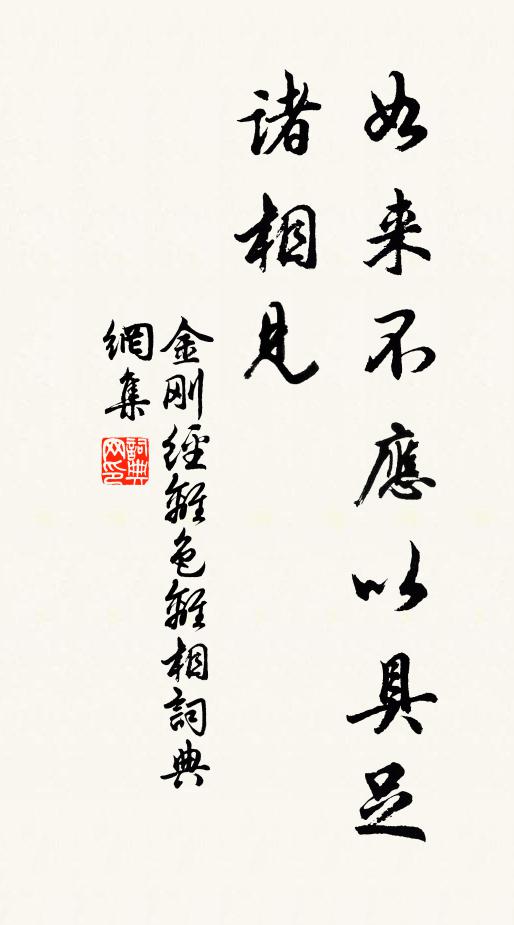 如来不應以具足
諸相見
金剛經離色離相詞典
網集
詞典
网印